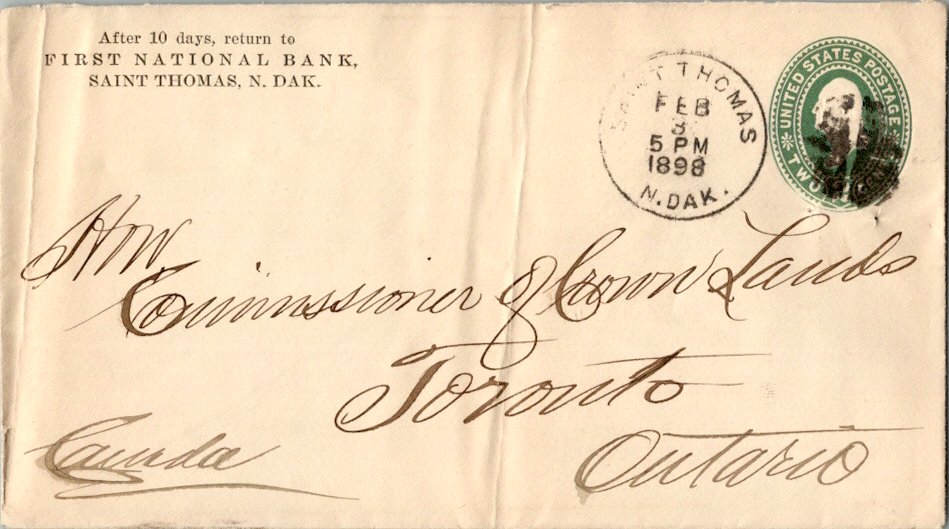 After 10 days, return to
FIRST NATIONAL BANK,
SAINT THOMAS, N. DAK.
SAINT THOMAS
FEB
3
5 PM
1898
N. DAK.
UNITED STATES POSTAGE
TWO
Hon
Commissioner of Crown Lands
Toronto
Ontario
Canada